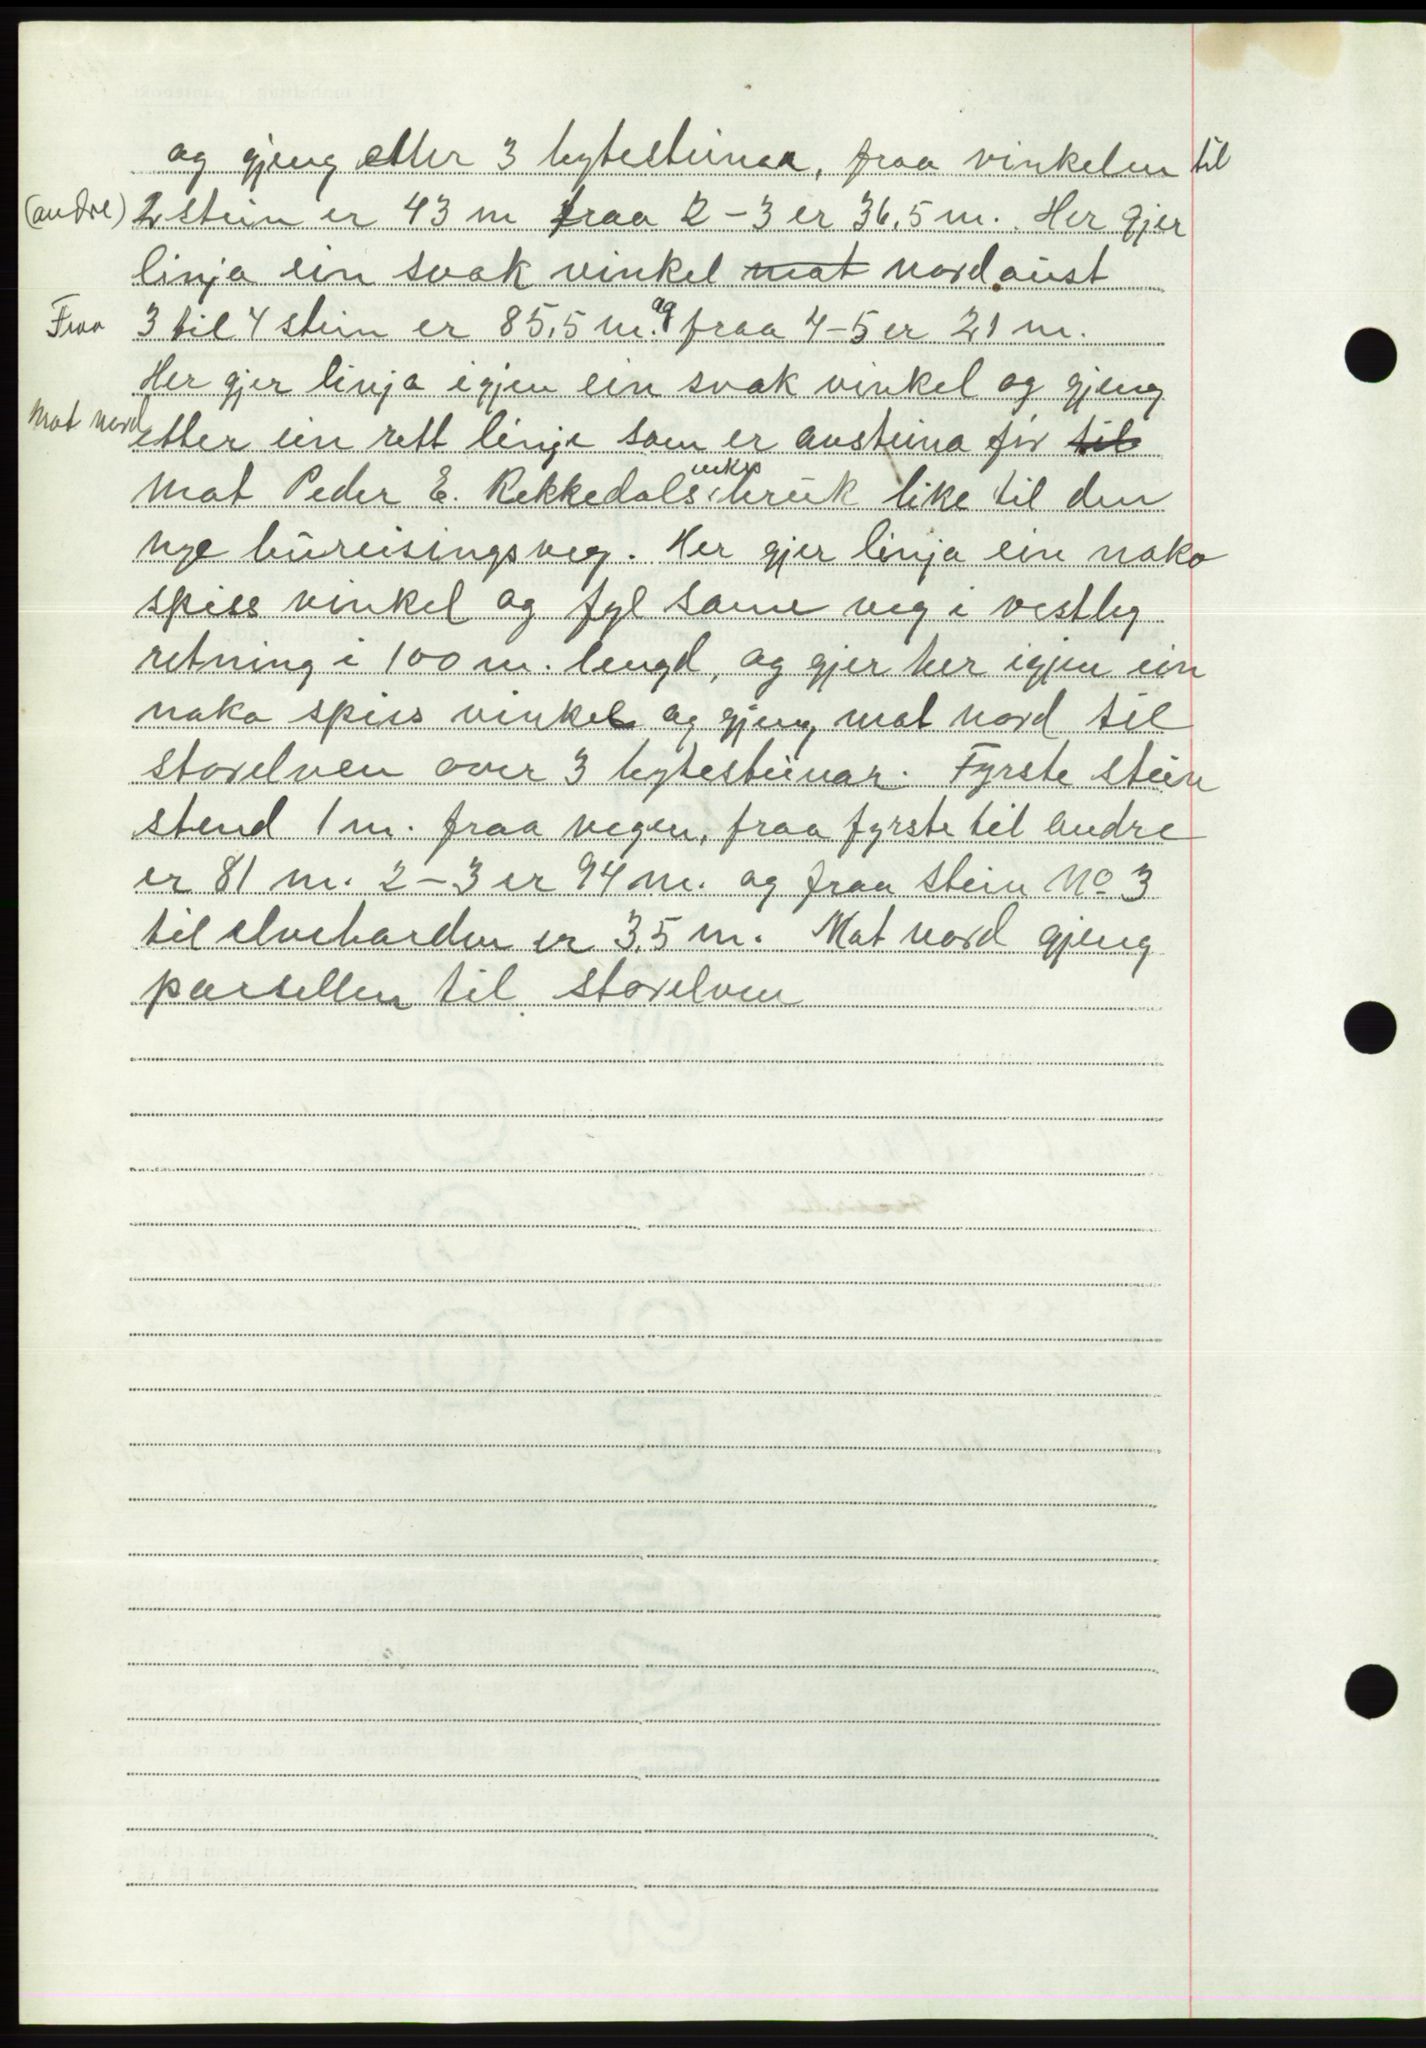 og gjeng etter 3 bytesteinar, fraa vinkelen til
(andre) 2 stein er 43 m fraa 2-3 er 36,5 m. Her gjer
linja ein svak vinkel mot nordaust
Fraa 3 til 4 stein er 85,5 m. og fraa 4-5 er 21 m.
Her gjer linja igjen ein svak vinkel og gjeng
mot nord etter ein rett linje som er austeina før til
mot Peder E. Rekkedals bruk like til den
nye bureisingsveg. Her gjer linja ein noko
spiss vinkel og fyl same veg i vestleg
retning i 100 m. lengd, og gjer her igjen ein
noko spiss vinkel og gjeng mot nord til
storelven over 3 bytesteinar. Fyrste stein
stend 1 m. fraa vegen, fraa fyrste til andre
er 81 m. 2-3 er 94 m. og fraa stein No 3
til elvebarden er 3,5 m. Mot nord gjeng
parsellen til storelven